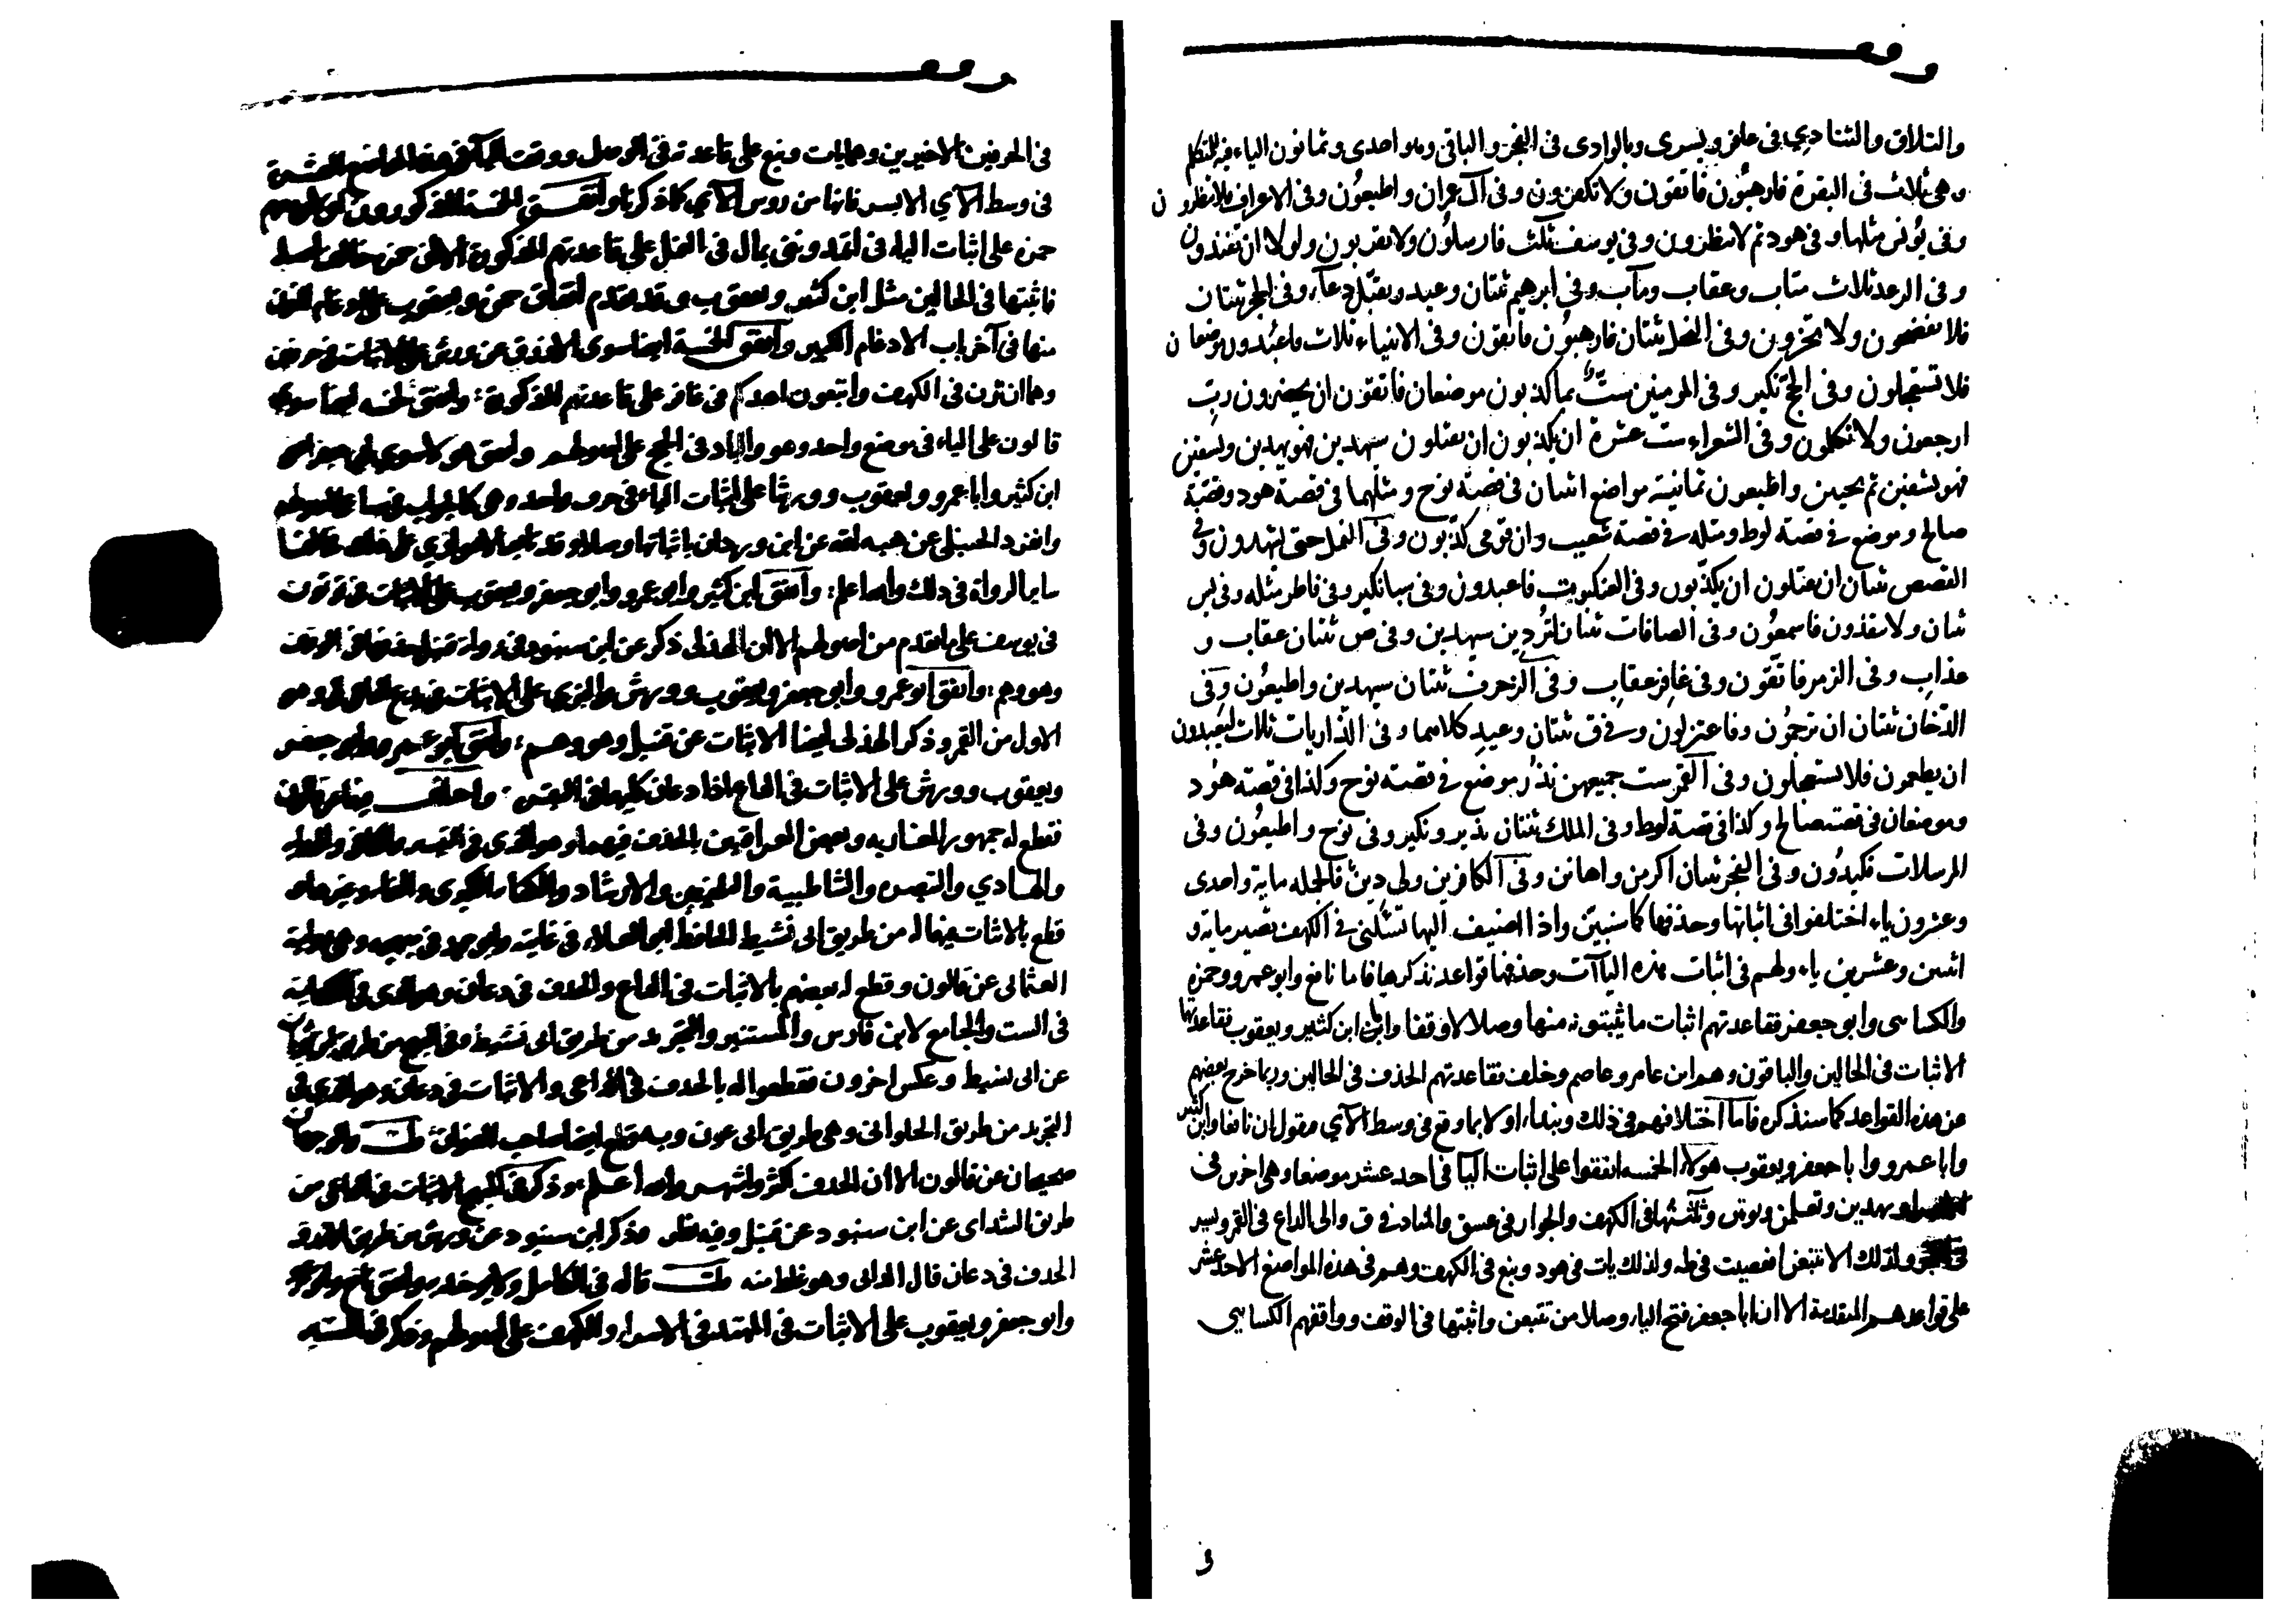 والتلاق والتنادي في غافر ويسرى وبالوادى في الفجر والباقي وهو احدى وثمانون الياء فيه للمتكلم
وهي ثلاث في البقرة فارهبون فاتقون ولا تكفرون وفي آل عمران واطيعون وفي الاعراف فلا تنظرون
وفي يونس مثلها وفي هود ثم لا تنظرون وفي يوسف ثلث فارسلون ولا تقربون ولولا ان تفندون
وفي الرعد ثلاث متاب وعقاب ومآب وفي ابرهيم ثنتان وعيد وتقبل دعآء وفي الحجر ثنتان
فلا تفضحون ولا تخزون وفي النحل ثنتان فارهبون فاتقون وفي الانبياء ثلاث فاعبدون موضعان
فلا تستعجلون وفي الحج نكير وفي المومنين ست بما كذبون موضعان فاتقون ان يحضرون رب
ارجعون ولا تكلمون وفي الشعراء ست عشرة ان يكذبون ان يقتلون سيهدين فهو يهدين ويسقين
فهو يشفين ثم يحيين واطيعون ثمانية مواضع اثنان في قصة نوح ومثلهما في قصة هود وقصة
صالح وموضع في قصة لوط ومثله في قصة شعيب وان قومي كذبون وفي النمل حتى تشهدون وفي
القصص ثنتان ان يقتلون ان يكذبون وفي العنكبوت فاعبدون وفي سبا نكير وفي فاطر مثله وفي يس
ثنتان ولا ينقذون فاسمعون وفي الصافات ثنتان لتردين سيهدين وفي ص ثنتان عقاب و
عذاب وفي الزمر فاتقون وفي غافر عقاب وفي الزخرف ثنتان سيهدين واطيعون وفي
الدخان ثنتان ان ترجمون وفاعتزلون وفي ق ثنتان وعيد كلاهما وفي الذاريات ثلاث ليعبدون
ان يطعمون فلا يستعجلون وفي القمر ست جميعهن نذر موضع في قصة نوح وكذا في قصة هود
وموضعان في قصة صالح وكذا في قصة لوط وفي الملك ثنتان نذير ونكير وفي نوح واطيعون وفي
المرسلات فكيدون وفي الفجر ثنتان اكرمن واهانن وفي الكافرين ولي دين فالجملة ماية واحدى
وعشرون ياء اختلفوا في اثباتها وحذفها كما سنبين واذا اضيف اليها تسئلني في الكهف تصير ماية و
اثنين وعشرين ياء ولهم في اثبات هذه الياآت وحذفها قواعد نذكرها فاما نافع وابو عمرو وحمزة
والكسائي وابو جعفر فقاعدتهم اثبات ما يثبتونه منها وصلا لا وقفا واما ابن كثير ويعقوب فقاعدتهما
الاثبات في الحالين والباقون وهم ابن عامر وعاصم وخلف فقاعدتهم الحذف في الحالين وربما خرج بعضهم
عن هذه القواعد كما سنذكره فاما اختلافهم في ذلك ونبداء اولا بما وقع في وسط الآي فنقول ان نافعا وابن كثير
وابا عمرو وابا جعفر ويعقوب هولاء الخمسة اتفقوا على اثبات اليا في احد عشر موضعا وهي اخرتن في
ويهدين وتعلمن ويوتين وثلثتها في الكهف والجوار في عسق والمناد في ق والى الداع في القمر ويسر
في وكذلك الا تتبعن افعصيت في طه وكذلك يات في هود ونبغ في الكهف وهم في هذه المواضع الاحد عشر
على قواعدهم المتقدمة الا ان ابا جعفر فتح الياء وصلا من تتبعن واثبتها في الوقف ووافقهم الكسائي
في الحرفين الاخيرين وهما يات ونبغ على قاعدته في الوصل ووقعت
في وسط الآي الا يسر فانها من روس الآي كما ذكرنا واتفق الخمسة المذكورون
حمزة على اثبات الياء في اتمدونني بمال في النمل على قاعدتهم المذكورة الا ان حمزة خالف اصله
فاثبتها في الحالين مثل ابن كثير ويعقوب وقد تقدم اتفاق حمزة ويعقوب على ادغام النون
منها في آخر باب الادغام الكبير واتفق الخمسة ايضا سوى الازرق عن ورش على الاثبات في حرفين
وهما ان ترن في الكهف واتبعون اهدكم في غافر على قاعدتهم المذكورة واتفق الخمسة ايضا سوى
قالون على الياء في موضع واحد وهو والباد في الحج على اصولهم واتفق هولا سوى ابي جعفر اعني
ابن كثير وابا عمرو ويعقوب وورشا على اثبات الياء في حرف واحد وهي كالجواب في سبا على اصولهم
وانفرد الحنبلي عن هبة الله عن ابن وردان باثباتها وصلا وقد تابعه الاهوازي على ذلك فخالفا
ساير الرواة في ذلك والله اعلم واتفق ابن كثير وابو عمرو وابو جعفر ويعقوب على الاثبات في تؤتون
في يوسف على ما تقدم من اصولهم الا ان الهذلي ذكر عن ابن شنبوذ في رواية قنبل حذفها في الوقف
وهو وهم واتفق ابو عمرو وابو جعفر ويعقوب وورش والبزي على الاثبات في يدع الداع الى وهو
الاول من القمر وذكر الهذلي ايضا الاثبات عن قنبل وهو وهم واتفق ابو عمرو وابو جعفر
ويعقوب وورش على الاثبات في الداع اذا دعان كليهما في البقرة واختلف فيهما عن قالون
فقطع له جمهور المغاربة وبعض العراقيين بالحذف فيهما وهو الذي في التيسير والكافي والهداية
والهادي والتبصرة والشاطبية والتلخيصين والارشاد والكفاية الكبرى والغاية وغيرها و
قطع بالاثبات فيهما له من طريق ابي نشيط الحافظ ابو العلاء في غايته وابو محمد في مبهجه وهي رواية
العثماني عن قالون وقطع له بعضهم بالاثبات في الداع والحذف في دعان وهو الذي في الكفاية
في الست والجامع لابن فارس والمستنير والتجريد من طريق ابي نشيط وفي المبهج من طريق ابن بويان
عن ابي نشيط وعكس اخرون فقطعوا له بالحذف في الداعي والاثبات في دعان وهو الذي في
التجريد من طريق الحلواني وهي طريق ابي عون وبه قطع ايضا صاحب العنوان قلت والوجهان
صحيحان عن قالون الا ان الحذف اكثر واشهر والله اعلم وذكر في المبهج الاثبات في الداعي من
طريق الشذاي عن ابن شنبوذ عن قنبل وفيه نظر وذكر ابن شنبوذ عن ورش من طريق الازرق
الحذف في دعان قال الداني وهو غلط منه قلت قاله في الكامل ولا يوخذ به واتفق نافع وابو عمرو
وابو جعفر ويعقوب على الاثبات في المهتد في الاسراء والكهف على اصولهم وذكر في المستنير